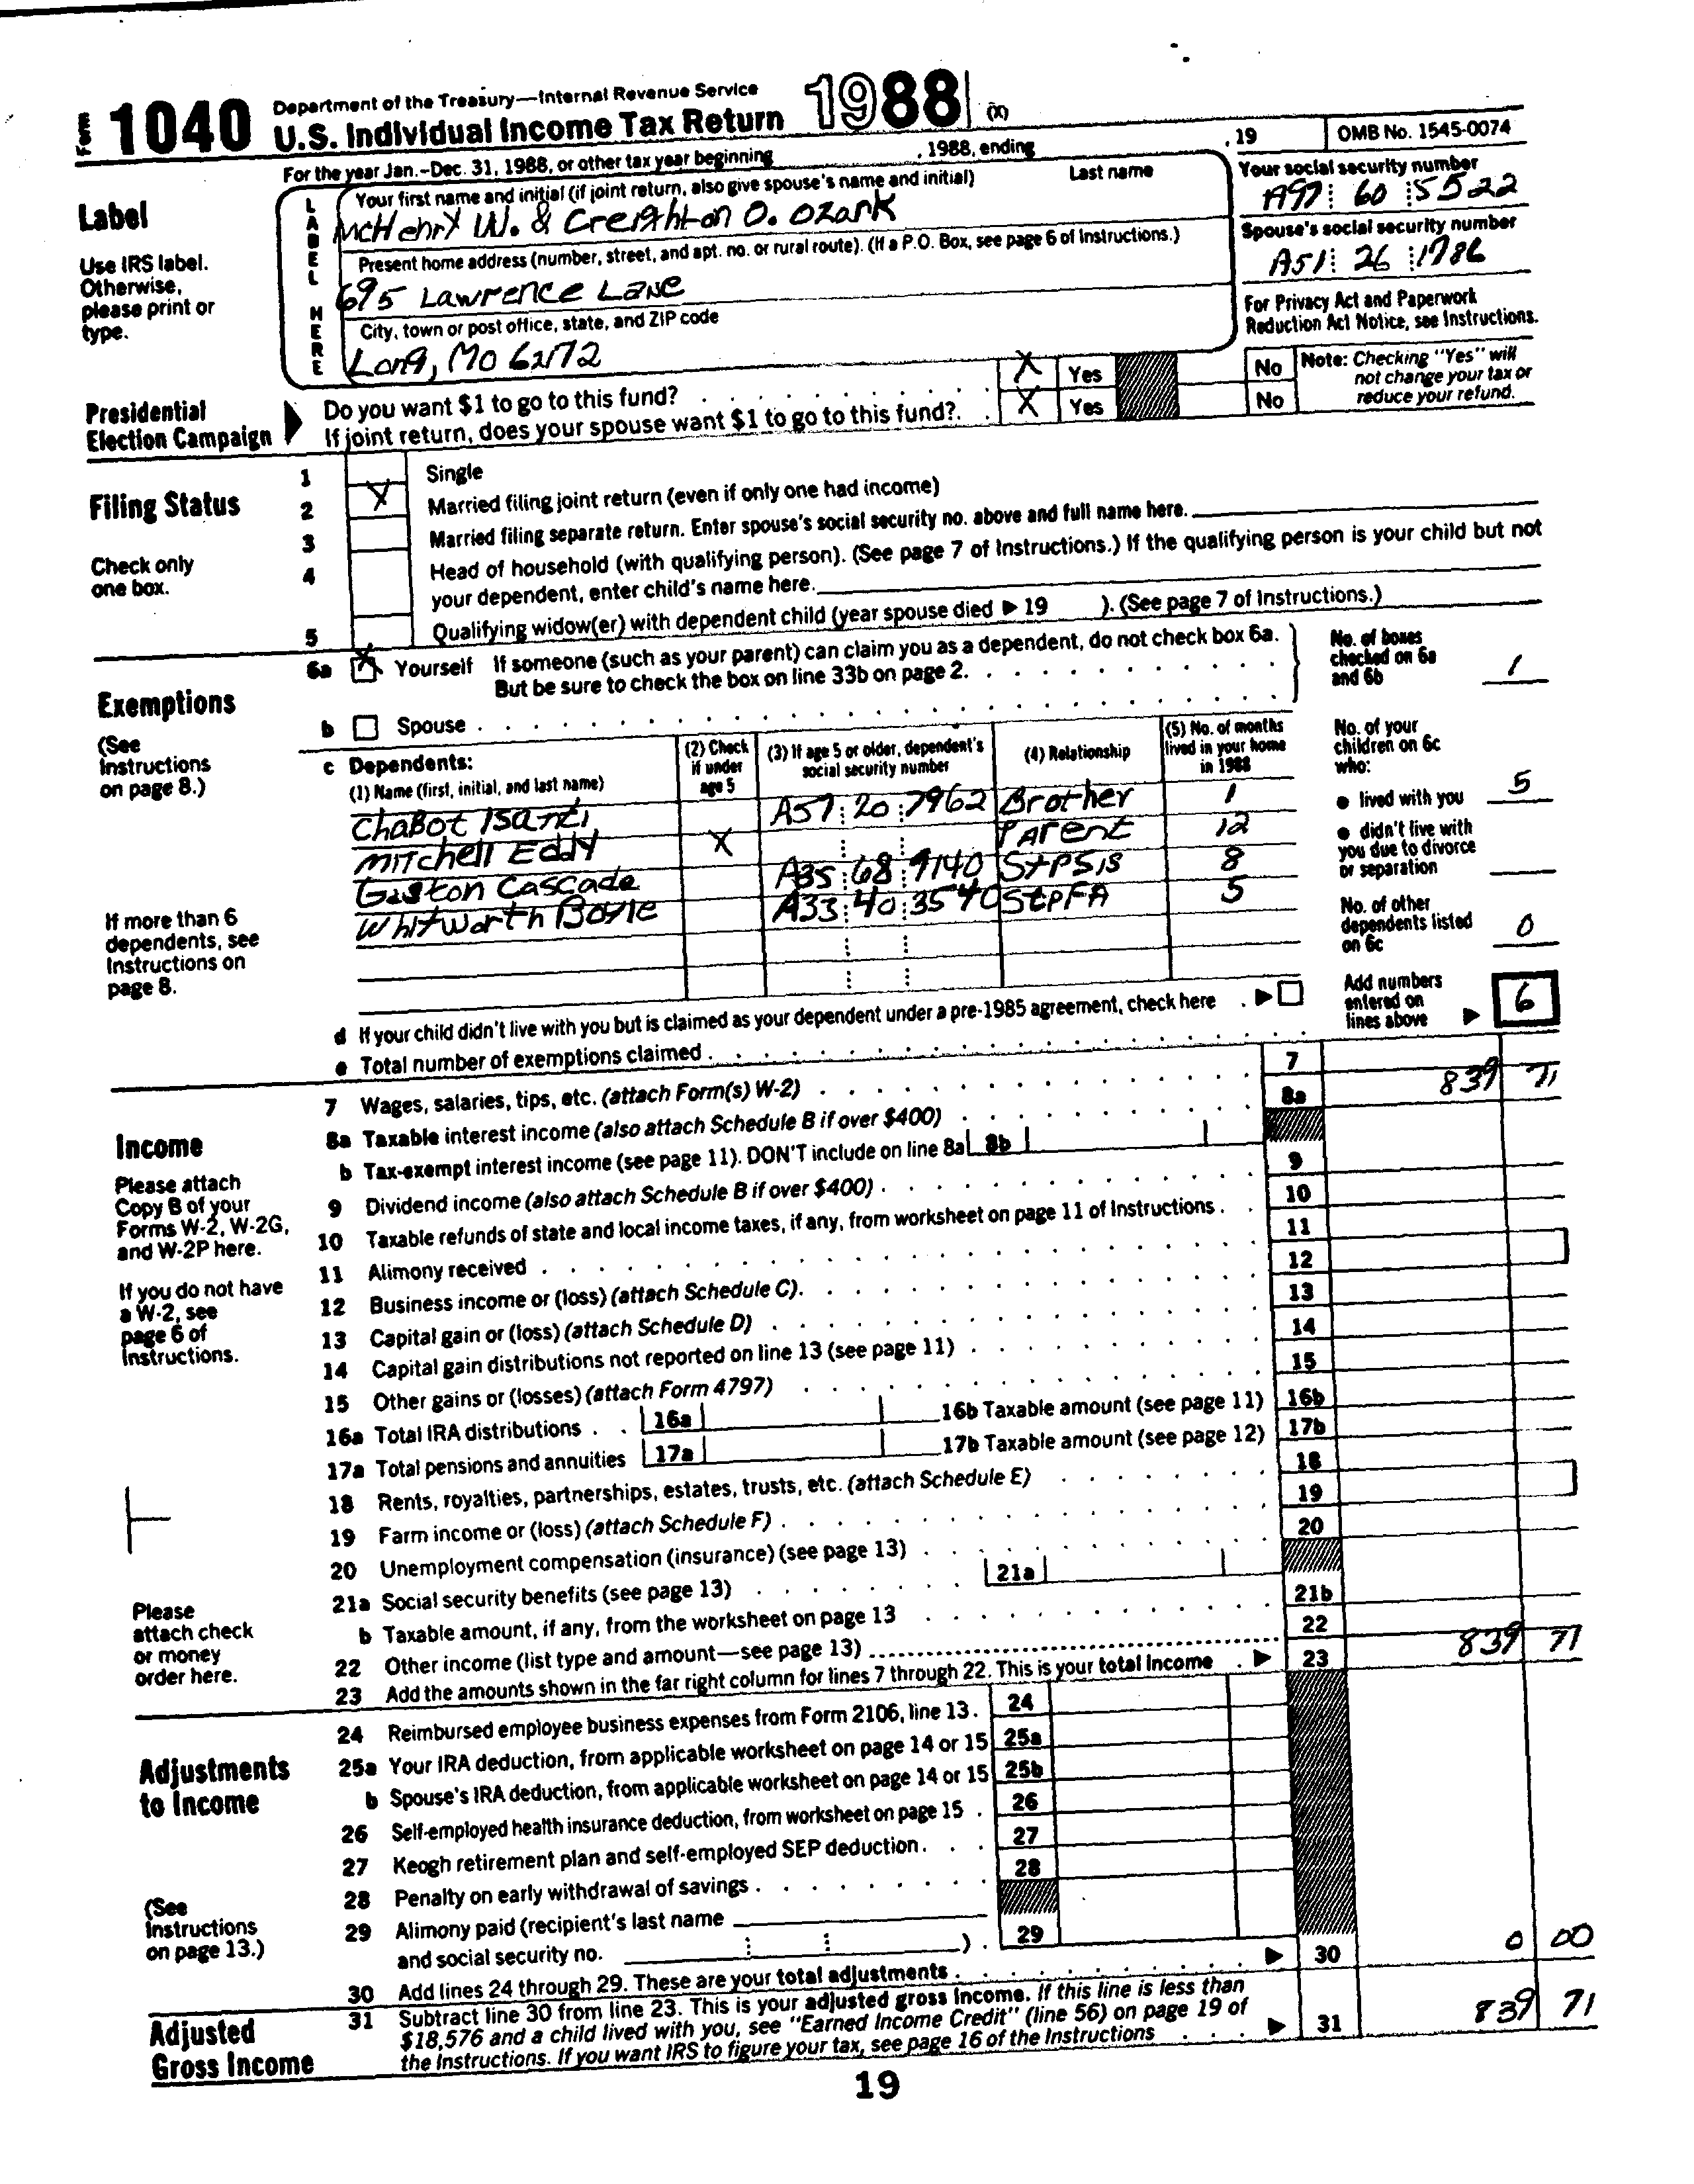 Form 1040 Department of the Treasury—Internal Revenue Service
U.S. Individual Income Tax Return 1988 (X)
For the year Jan.–Dec. 31, 1988, or other tax year beginning , 1988, ending , 19 OMB No. 1545-0074
Label
Use IRS label. Otherwise, please print or type.
LABEL HERE
Your first name and initial (if joint return, also give spouse's name and initial) Last name
McHenry W. & Creighton O. Ozark
Your social security number
A97 60 5522
Present home address (number, street, and apt. no. or rural route). (If a P.O. Box, see page 6 of Instructions.)
695 Lawrence Lane
Spouse's social security number
A51 26 1786
City, town or post office, state, and ZIP code
Long, MO 62172
For Privacy Act and Paperwork Reduction Act Notice, see Instructions.
Presidential Election Campaign
Do you want $1 to go to this fund? X Yes No
If joint return, does your spouse want $1 to go to this fund?. X Yes No
Note: Checking "Yes" will not change your tax or reduce your refund.
Filing Status
Check only one box.
1 Single
2 X Married filing joint return (even if only one had income)
3 Married filing separate return. Enter spouse's social security no. above and full name here.
4 Head of household (with qualifying person). (See page 7 of Instructions.) If the qualifying person is your child but not
your dependent, enter child's name here.
5 Qualifying widow(er) with dependent child (year spouse died ▶ 19 ). (See page 7 of Instructions.)
Exemptions
(See Instructions on page 8.)
6a X Yourself If someone (such as your parent) can claim you as a dependent, do not check box 6a.
But be sure to check the box on line 33b on page 2.
b Spouse
No. of boxes checked on 6a and 6b 1
c Dependents:
(1) Name (first, initial, and last name) (2) Check if under age 5 (3) If age 5 or older, dependent's social security number (4) Relationship (5) No. of months lived in your home in 1988
Chabot Isanti A57 20 7962 Brother 1
Mitchell Eddy X Parent 12
Gaston Cascade A35 68 9140 StPSis 8
Whitworth Boyle A33 40 3540 StpFA 5
No. of your children on 6c who:
● lived with you 5
● didn't live with you due to divorce or separation
No. of other dependents listed on 6c 0
If more than 6 dependents, see Instructions on page 8.
d If your child didn't live with you but is claimed as your dependent under a pre-1985 agreement, check here ▶
e Total number of exemptions claimed
Add numbers entered on lines above ▶ 6
Income
Please attach Copy B of your Forms W-2, W-2G, and W-2P here.
If you do not have a W-2, see page 6 of Instructions.
Please attach check or money order here.
7 Wages, salaries, tips, etc. (attach Form(s) W-2) 7
8a Taxable interest income (also attach Schedule B if over $400) 8a 839 71
b Tax-exempt interest income (see page 11). DON'T include on line 8a 8b
9 Dividend income (also attach Schedule B if over $400) 9
10 Taxable refunds of state and local income taxes, if any, from worksheet on page 11 of Instructions 10
11 Alimony received 11
12 Business income or (loss) (attach Schedule C). 12
13 Capital gain or (loss) (attach Schedule D) 13
14 Capital gain distributions not reported on line 13 (see page 11) 14
15 Other gains or (losses) (attach Form 4797) 15
16a Total IRA distributions 16a 16b Taxable amount (see page 11) 16b
17a Total pensions and annuities 17a 17b Taxable amount (see page 12) 17b
18 Rents, royalties, partnerships, estates, trusts, etc. (attach Schedule E) 18
19 Farm income or (loss) (attach Schedule F) 19
20 Unemployment compensation (insurance) (see page 13) 20
21a Social security benefits (see page 13) 21a
b Taxable amount, if any, from the worksheet on page 13 21b
22 Other income (list type and amount—see page 13) 22
23 Add the amounts shown in the far right column for lines 7 through 22. This is your total income ▶ 23 839 71
Adjustments to Income
(See Instructions on page 13.)
24 Reimbursed employee business expenses from Form 2106, line 13. 24
25a Your IRA deduction, from applicable worksheet on page 14 or 15 25a
b Spouse's IRA deduction, from applicable worksheet on page 14 or 15 25b
26 Self-employed health insurance deduction, from worksheet on page 15 26
27 Keogh retirement plan and self-employed SEP deduction. 27
28 Penalty on early withdrawal of savings 28
29 Alimony paid (recipient's last name
and social security no. ) 29
30 Add lines 24 through 29. These are your total adjustments ▶ 30 0 00
Adjusted Gross Income
31 Subtract line 30 from line 23. This is your adjusted gross income. If this line is less than
$18,576 and a child lived with you, see "Earned Income Credit" (line 56) on page 19 of
the Instructions. If you want IRS to figure your tax, see page 16 of the Instructions ▶ 31 839 71
19